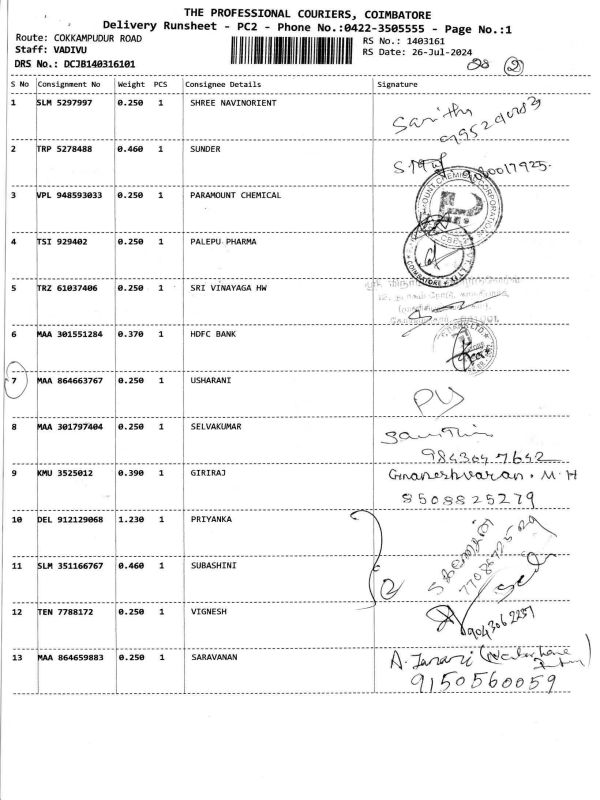 THE PROFESSIONAL COURIERS, COIMBATORE
Delivery Runsheet - PC2 - Phone No.:0422-3505555 - Page No.:1
Route: COKKAMPUDUR ROAD
RS No.: 1403161
Staff: VADIVU
RS Date: 26-Jul-2024
DRS No.: DCJB140316101
S No Consignment No Weight PCS Consignee Details Signature
1 SLM 5297997 0.250 1 SHREE NAVINORIENT
2 TRP 5278488 0.460 1 SUNDER
3 VPL 948593033 0.250 1 PARAMOUNT CHEMICAL
4 TSI 929402 0.250 1 PALEPU PHARMA
COIMBATORE
5 TRZ 61037406 0.250 1 SRI VINAYAGA HW
6 MAA 301551284 0.370 1 HDFC BANK
7 MAA 864663767 0.250 1 USHARANI
8 MAA 301797404 0.250 1 SELVAKUMAR
9843047642
9 KMU 3525012 0.390 1 GIRIRAJ Gnaneshvaran. M.H
8508825279
10 DEL 912129068 1.230 1 PRIYANKA
11 SLM 351166767 0.460 1 SUBASHINI 2
12 TEN 7788172 0.250 1 VIGNESH
13 MAA 864659883 0.250 1 SARAVANAN
9150560059